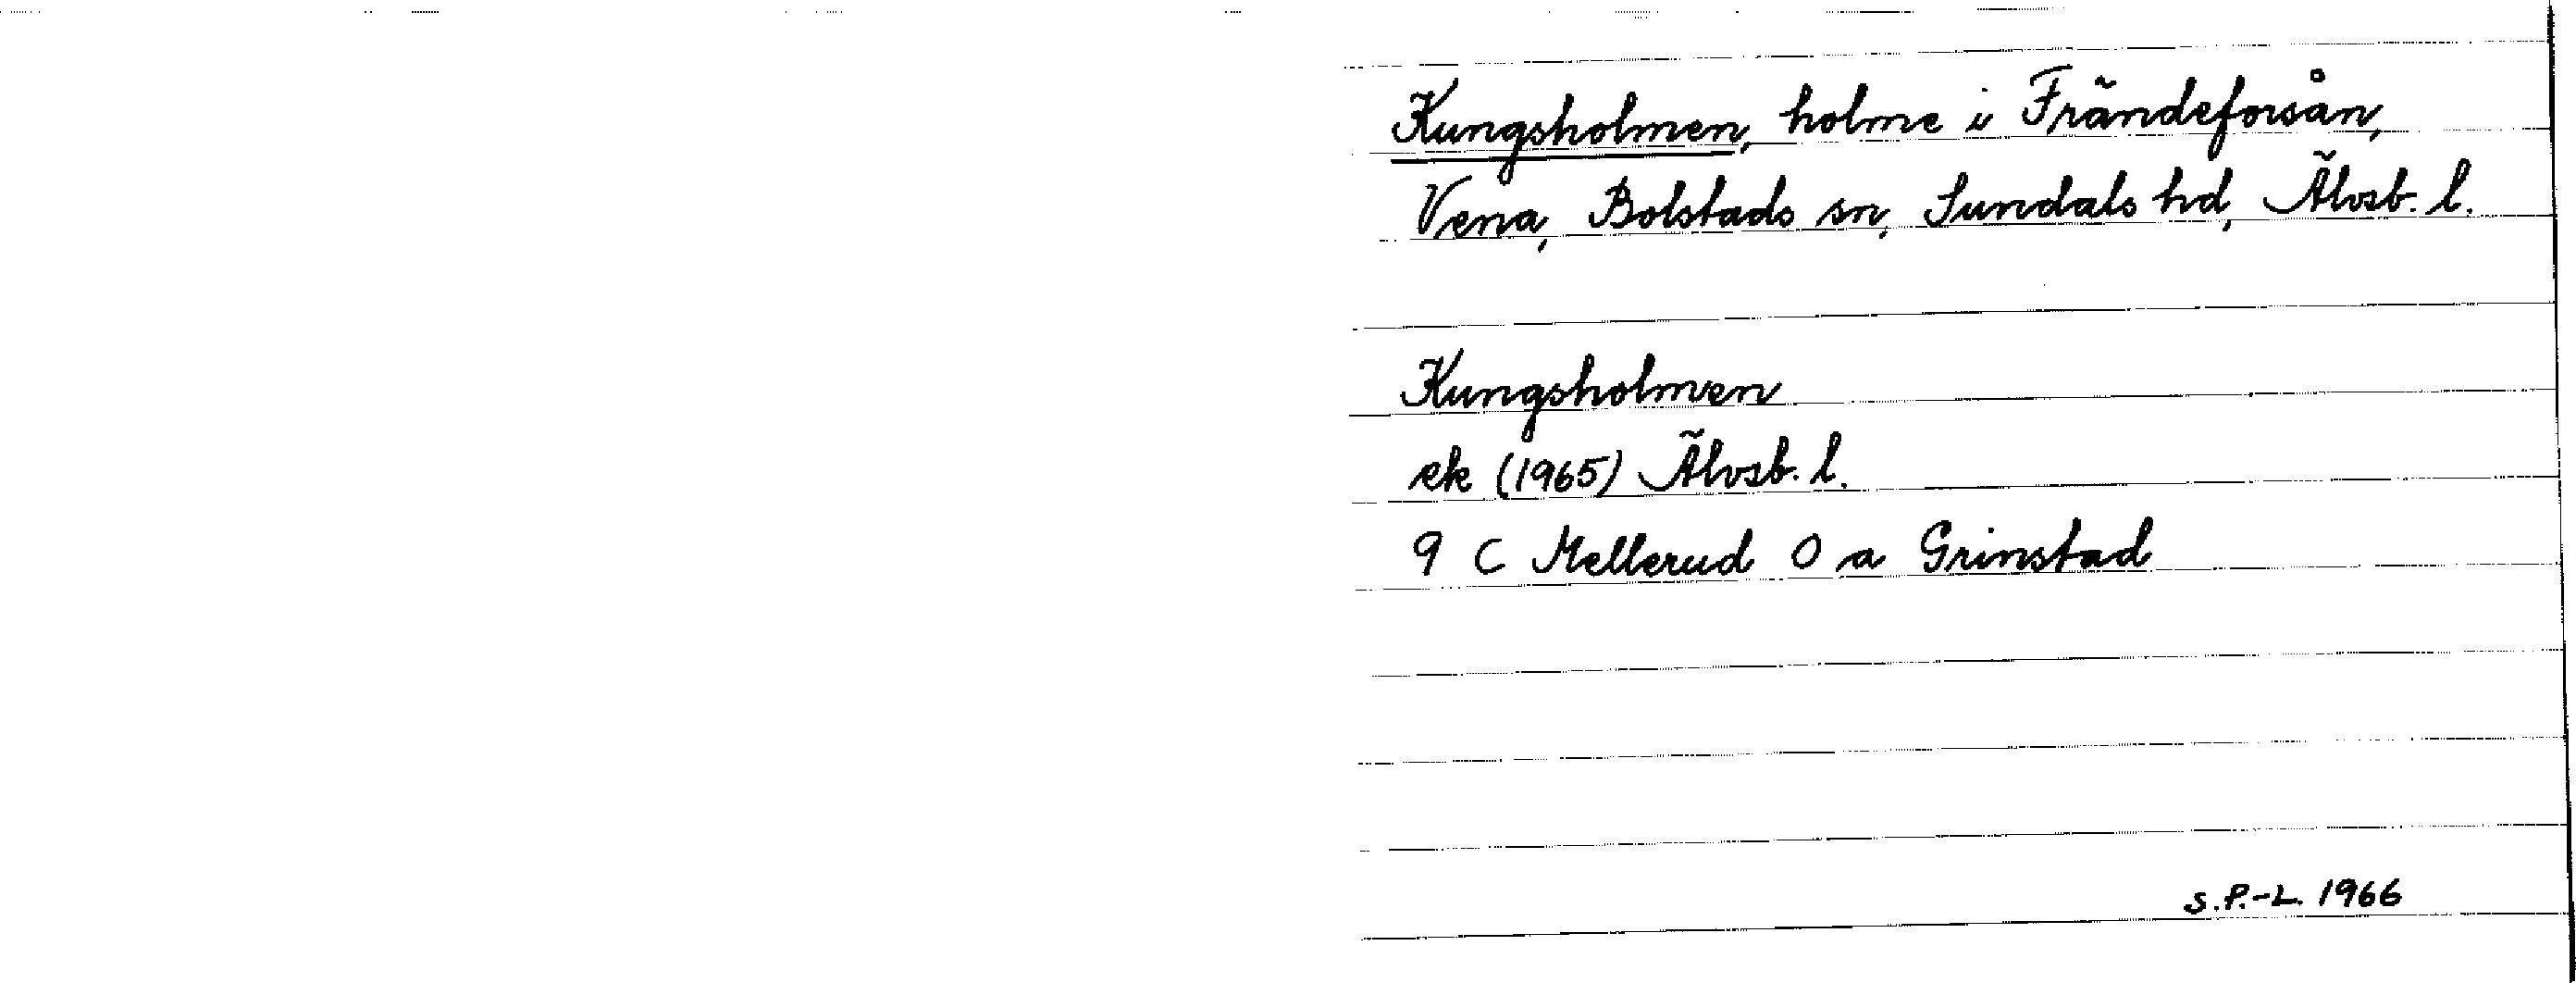 Kungsholmen, holme i Frändeforsån,
Vena, Bolstads sn, Sundals hd, Älvsb. l.
Kungsholmen
ek (1965) Älvsb. l.
9 C Mellerud O a Grinstad
S.P.-L. 1966